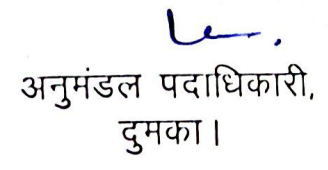 अनुमंडल पदाधिकारी,
दुमका।